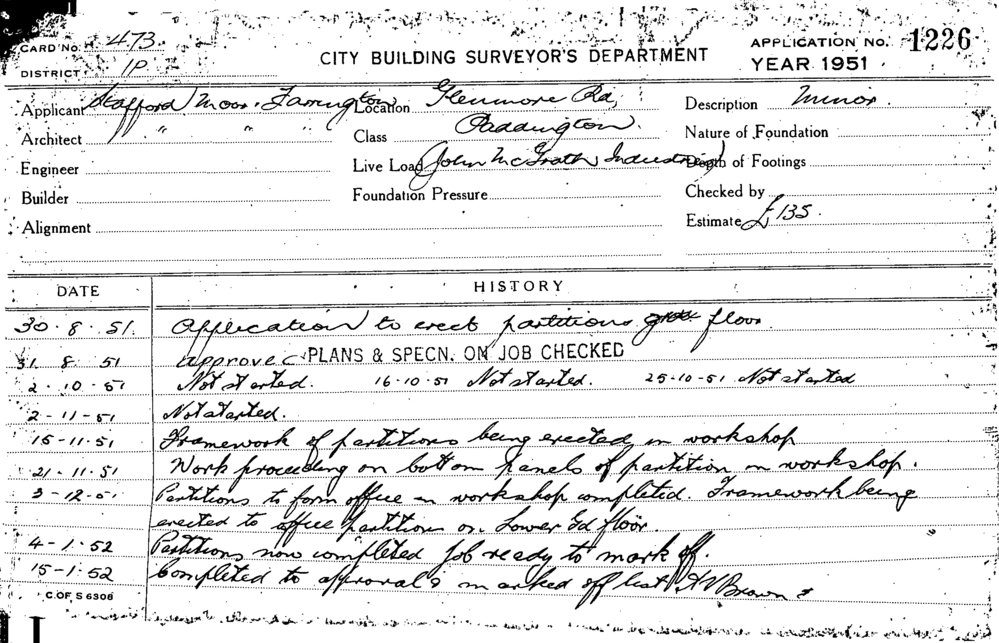 CARD No. 473
CITY BUILDING SURVEYOR'S DEPARTMENT
APPLICATION No. 1226
DISTRICT 1P
YEAR 1951
Applicant Stafford Moor, Farrington Location Glenmore Rd, Description Minor.
Architect " " " Class Paddington. Nature of Foundation
Engineer Live Load (John McGrath Industries) Depth of Footings
Builder Foundation Pressure Checked by
Alignment Estimate £135.
DATE HISTORY
30.8.51. Application to erect partitions floor.
31.8.51 approved PLANS & SPECN. ON JOB CHECKED
2.10.51 Not started. 16-10-51 Not started. 25-10-51 Not started
2-11-51 Not started.
15-11-51 Framework of partitions being erected in workshop
21-11-51 Work proceeding on bottom panels of partition in workshop.
3-12-51 Partitions to form office in workshop completed. Framework being
erected to office partition on Lower Gd floor.
4-1-52 Partitions now completed Job ready to mark off.
15-1-52 Completed to approval & marked off list Brown
C. OF S 6306